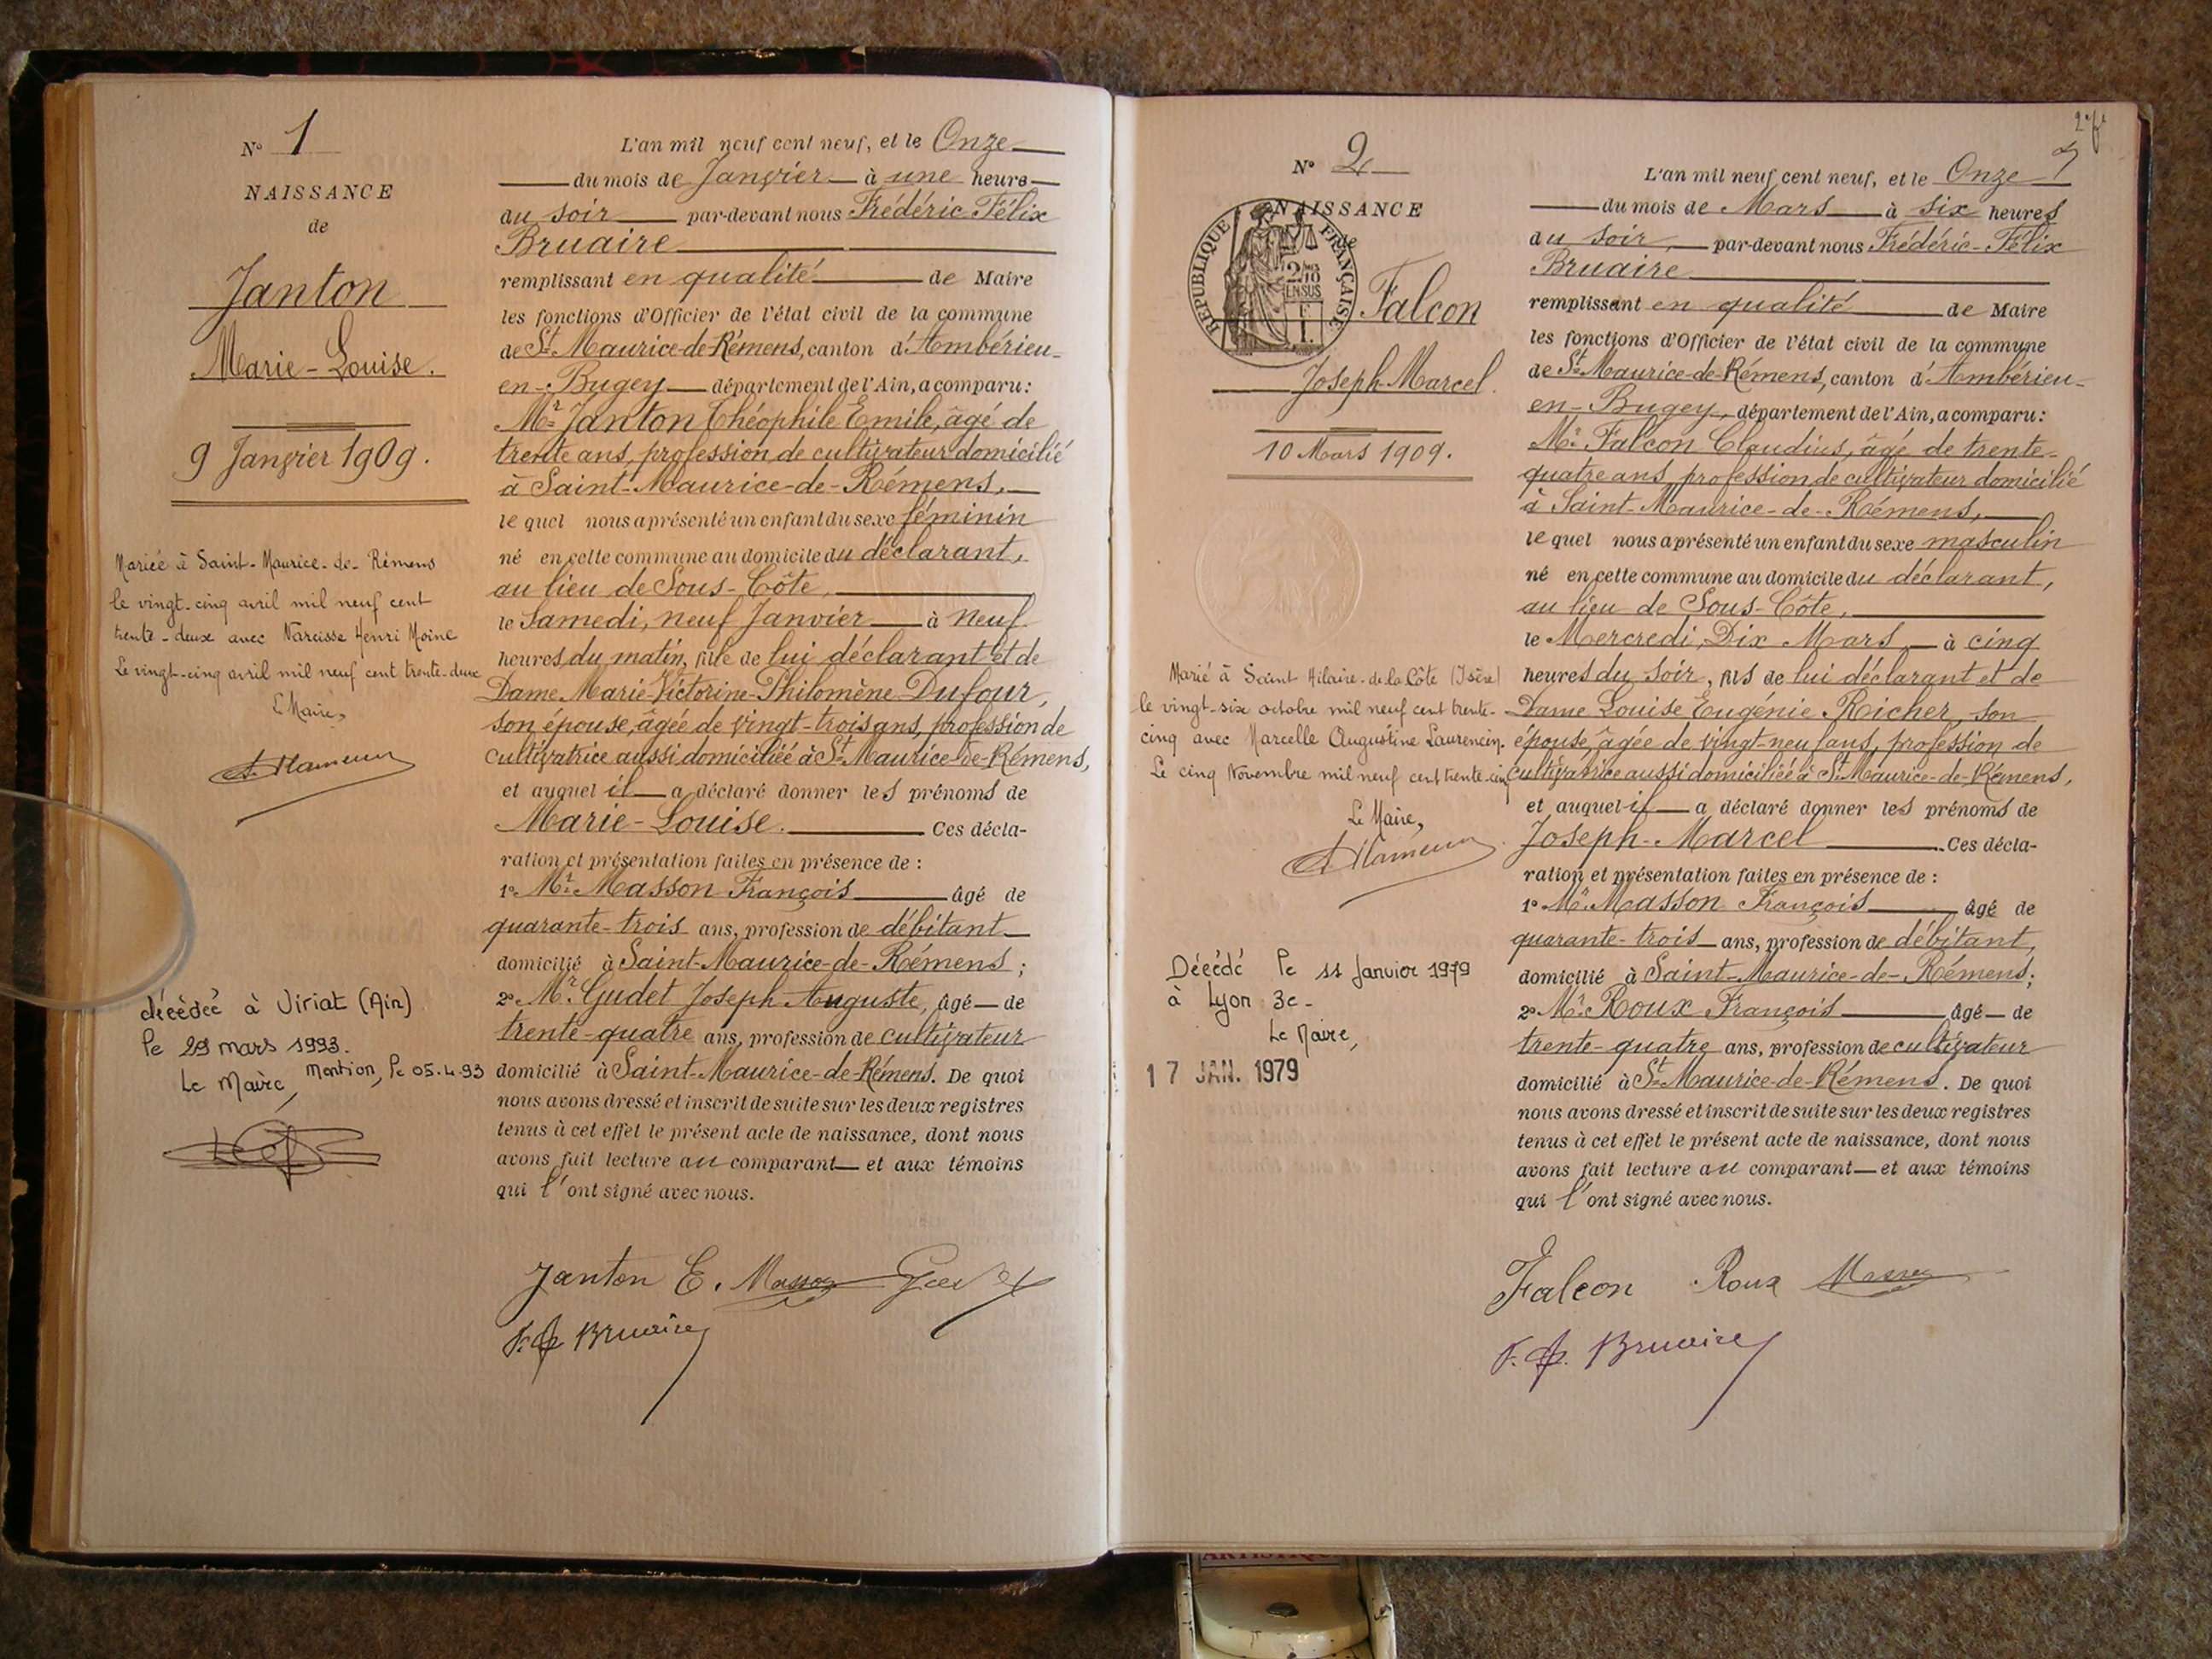 N° 1
NAISSANCE
de
Janton
Marie-Louise.
9 Janvier 1909.
Mariée à Saint-Maurice-de-Rémens
le vingt-cinq avril mil neuf cent
trente-deux avec Narcisse Henri Moine
Le vingt-cinq avril mil neuf cent trente-deux
Le Maire,
décédée à Viriat (Ain)
le 29 mars 1993.
Mention, le 05.4.93
Le Maire,
L'an mil neuf cent neuf, et le Onze
du mois de Janvier à une heure
du soir par-devant nous Frédéric Félix
Bruaire
remplissant en qualité de Maire
les fonctions d'Officier de l'état civil de la commune
de St Maurice-de-Rémens, canton d'Ambérieu-
en-Bugey département de l'Ain, a comparu:
Mr Janton Théophile Emile, âgé de
trente ans, profession de cultivateur domicilié
à Saint-Maurice-de-Rémens,
le quel nous a présenté un enfant du sexe féminin
né en cette commune au domicile du déclarant,
au lieu de Sous-Côte,
le Samedi, neuf Janvier à neuf
heures du matin, fille de lui déclarant et de
Dame Marie-Victorine-Philomène Dufour,
son épouse, âgée de vingt-trois ans, profession de
cultivatrice aussi domiciliée à St Maurice-de-Rémens,
et auquel il a déclaré donner les prénoms de
Marie-Louise. Ces décla-
ration et présentation faites en présence de :
1° Mr Masson François âgé de
quarante-trois ans, profession de débitant
domicilié à Saint-Maurice-de-Rémens;
2° Mr Gudet Joseph Auguste, âgé de
trente-quatre ans, profession de cultivateur
domicilié à Saint-Maurice-de-Rémens. De quoi
nous avons dressé et inscrit de suite sur les deux registres
tenus à cet effet le présent acte de naissance, dont nous
avons fait lecture au comparant et aux témoins
qui l'ont signé avec nous.
Janton E. Masson Gudet
F. F. Bruaire
2e ft
N° 2
NAISSANCE
de
RÉPUBLIQUE FRANÇAISE
Falcon
Joseph-Marcel.
10 Mars 1909.
Marié à Saint Hilaire-de-la Côte (Isère)
le vingt-six octobre mil neuf cent trente-
cinq avec Marcelle Augustine Laurencin.
Le cinq Novembre mil neuf cent trente-cinq
Le Maire,
Décédé le 11 Janvier 1979
à Lyon 3e -
Le Maire,
17 JAN. 1979
L'an mil neuf cent neuf, et le Onze
du mois de Mars à six heures
du soir, par-devant nous Frédéric-Félix
Bruaire
remplissant en qualité de Maire
les fonctions d'Officier de l'état civil de la commune
de St Maurice-de-Rémens, canton d'Ambérieu-
en-Bugey, département de l'Ain, a comparu:
Mr Falcon Claudius, âgé de trente-
quatre ans, profession de cultivateur domicilié
à Saint-Maurice-de-Rémens,
le quel nous a présenté un enfant du sexe masculin
né en cette commune au domicile du déclarant,
au lieu de Sous-Côte,
le Mercredi, Dix Mars, à cinq
heures du soir, fils de lui déclarant et de
Dame Louise Eugénie Richer, son
épouse, âgée de vingt-neuf ans, profession de
cultivatrice aussi domiciliée à St Maurice-de-Rémens,
et auquel il a déclaré donner les prénoms de
Joseph-Marcel. Ces décla-
ration et présentation faites en présence de :
1° Mr Masson François âgé de
quarante-trois ans, profession de débitant,
domicilié à Saint-Maurice-de-Rémens;
2° Mr Roux François âgé de
trente-quatre ans, profession de cultivateur
domicilié à St Maurice-de-Rémens. De quoi
nous avons dressé et inscrit de suite sur les deux registres
tenus à cet effet le présent acte de naissance, dont nous
avons fait lecture au comparant et aux témoins
qui l'ont signé avec nous.
Falcon Roux Masson
F. F. Bruaire